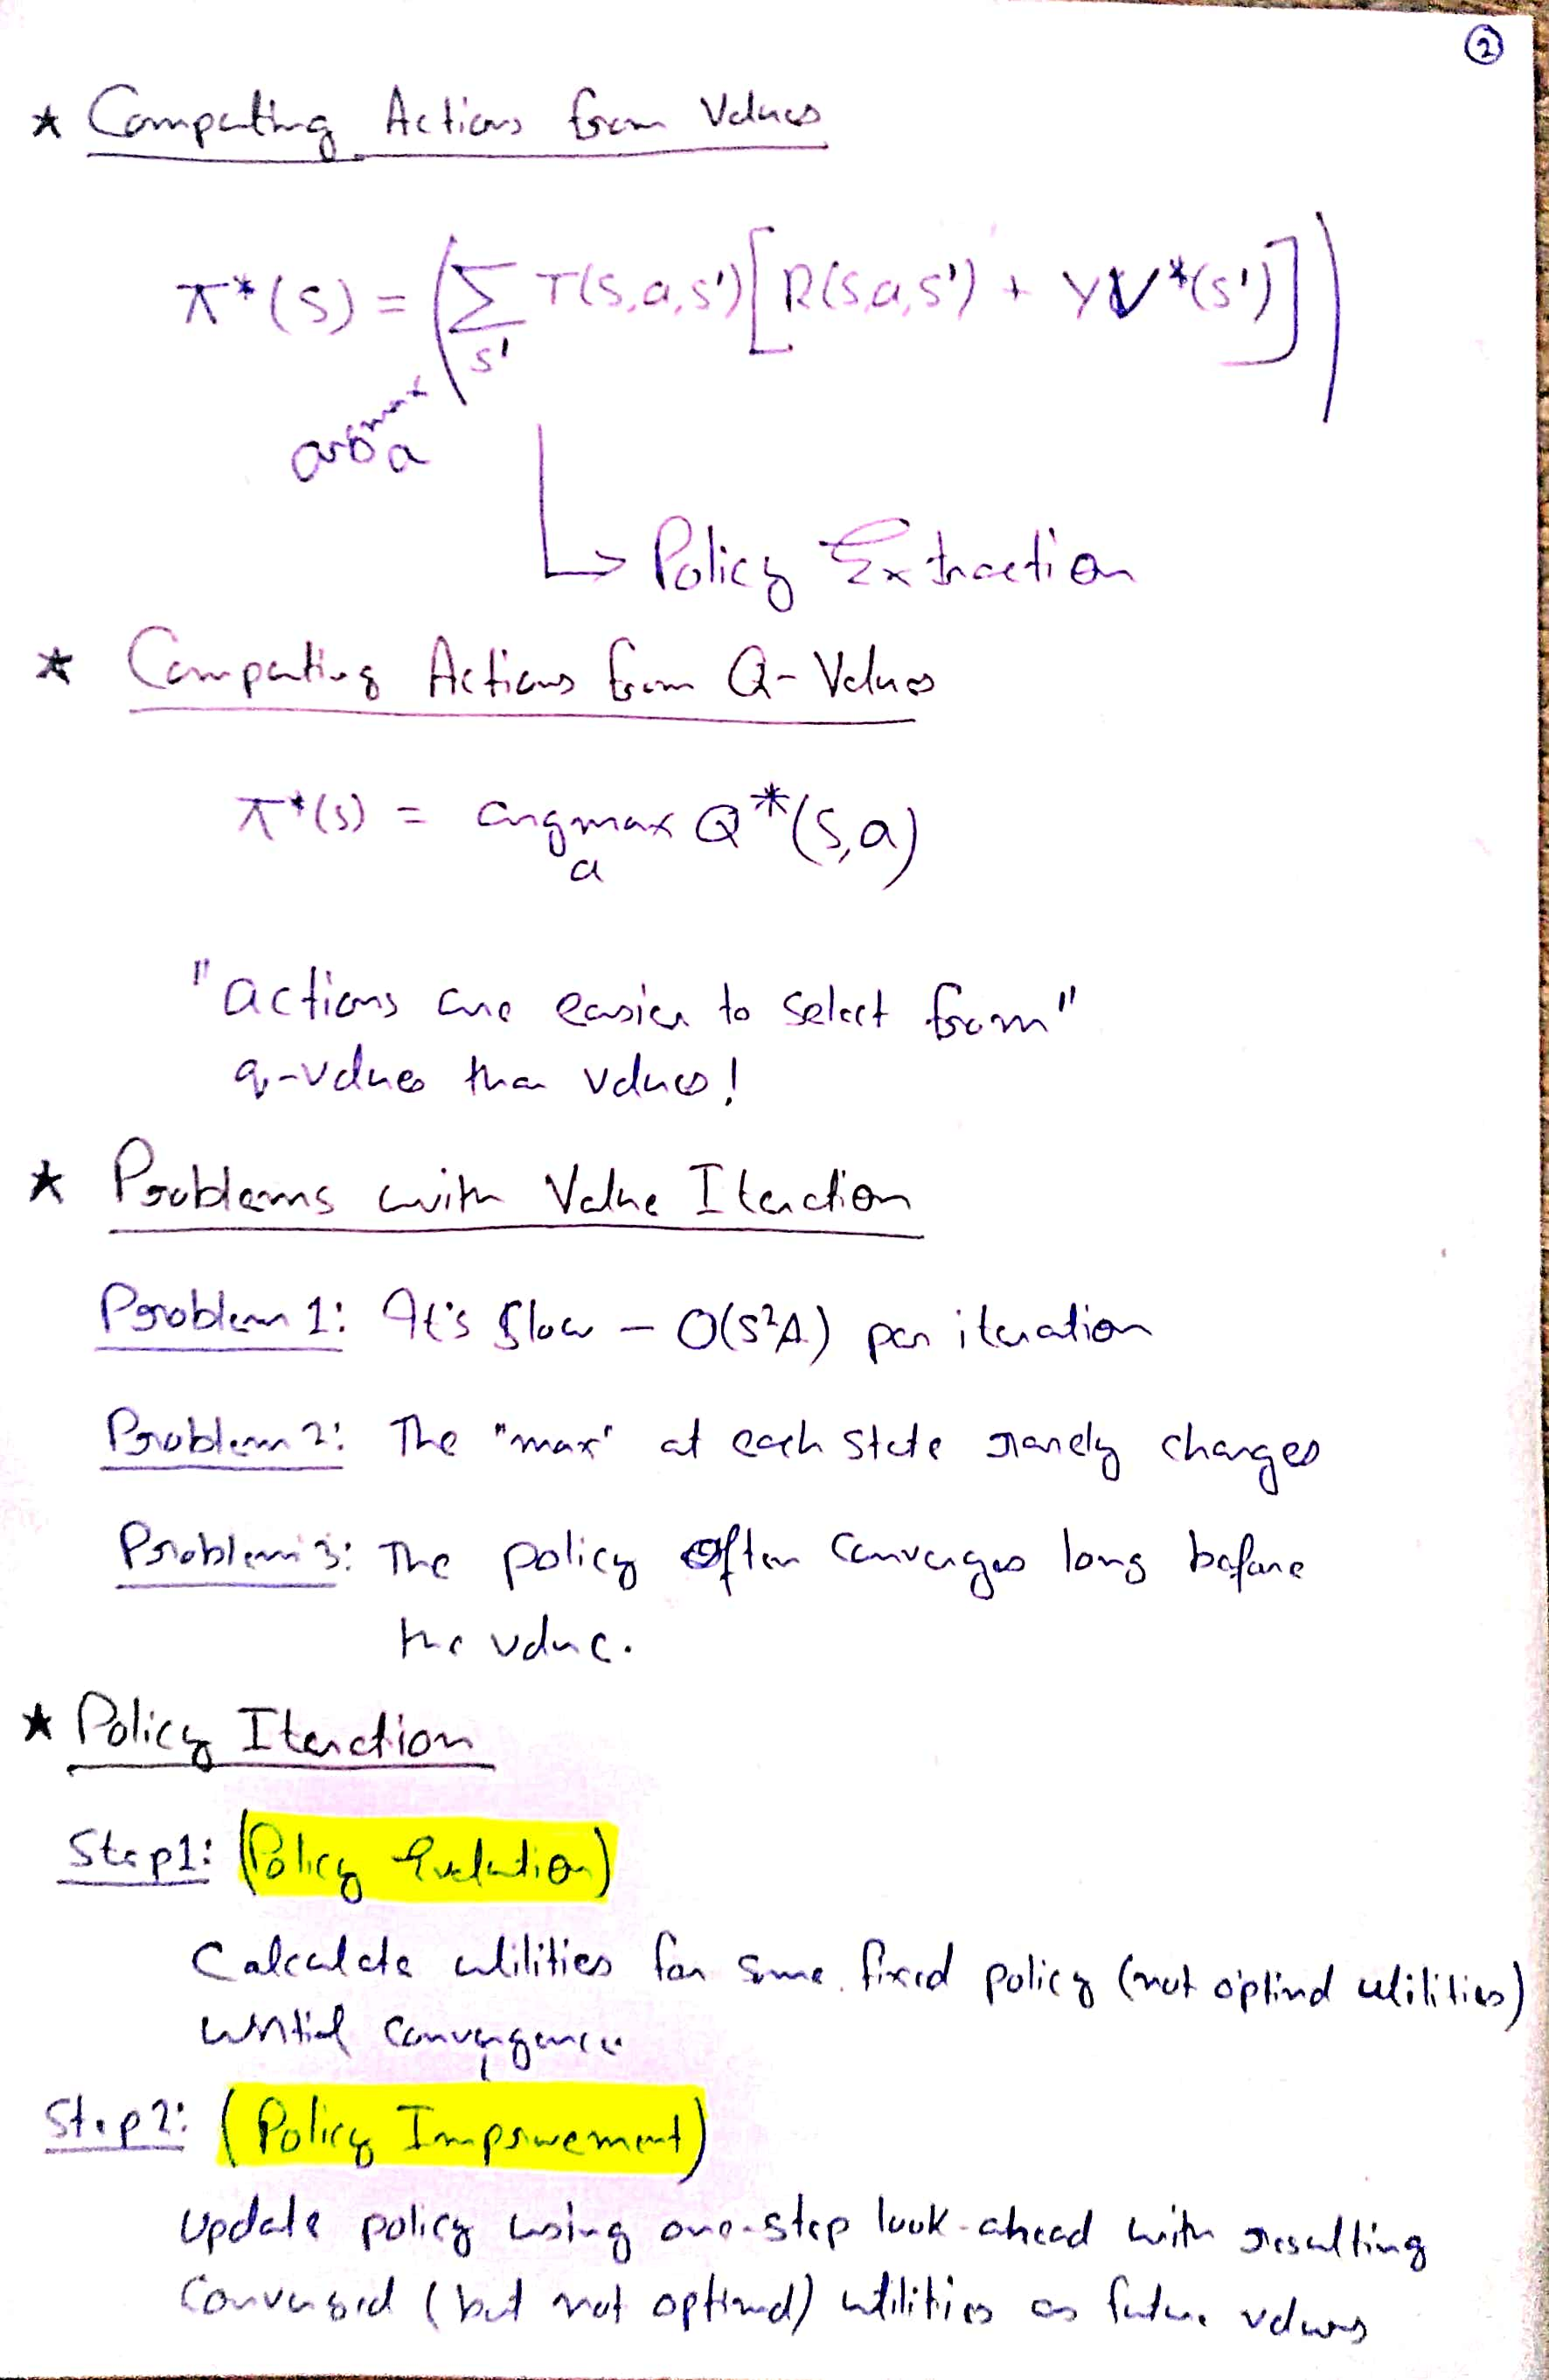 ②
★ Computing Actions from Values
π*(s) = (∑ T(s,a,s')[R(s,a,s') + γV*(s')])
s'
argmax
a
↳ Policy Extraction
★ Computing Actions from Q-Values
π*(s) = argmax Q*(s,a)
a
"actions are easier to select from"
q-values than values!
★ Problems with Value Iteration
Problem 1: It's slow – O(S²A) per iteration
Problem 2: The "max" at each state rarely changes
Problem 3: The policy often converges long before
the value.
★ Policy Iteration
Step1: (Policy Evaluation)
Calculate utilities for some fixed policy (not optimal utilities)
until convergence
Step2: (Policy Improvement)
Update policy using one-step look-ahead with resulting
Converged (but not optimal) utilities as future values